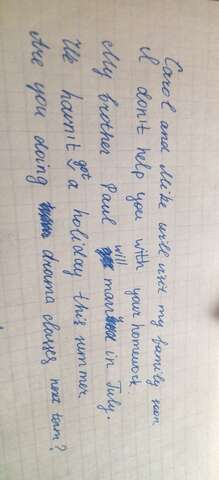 Carol and Mike will visit my family soon
I don't help you with your homework.
My brother Paul will marry in July.
We havn't got a holiday this summer.
Are you doing drama classes next team?